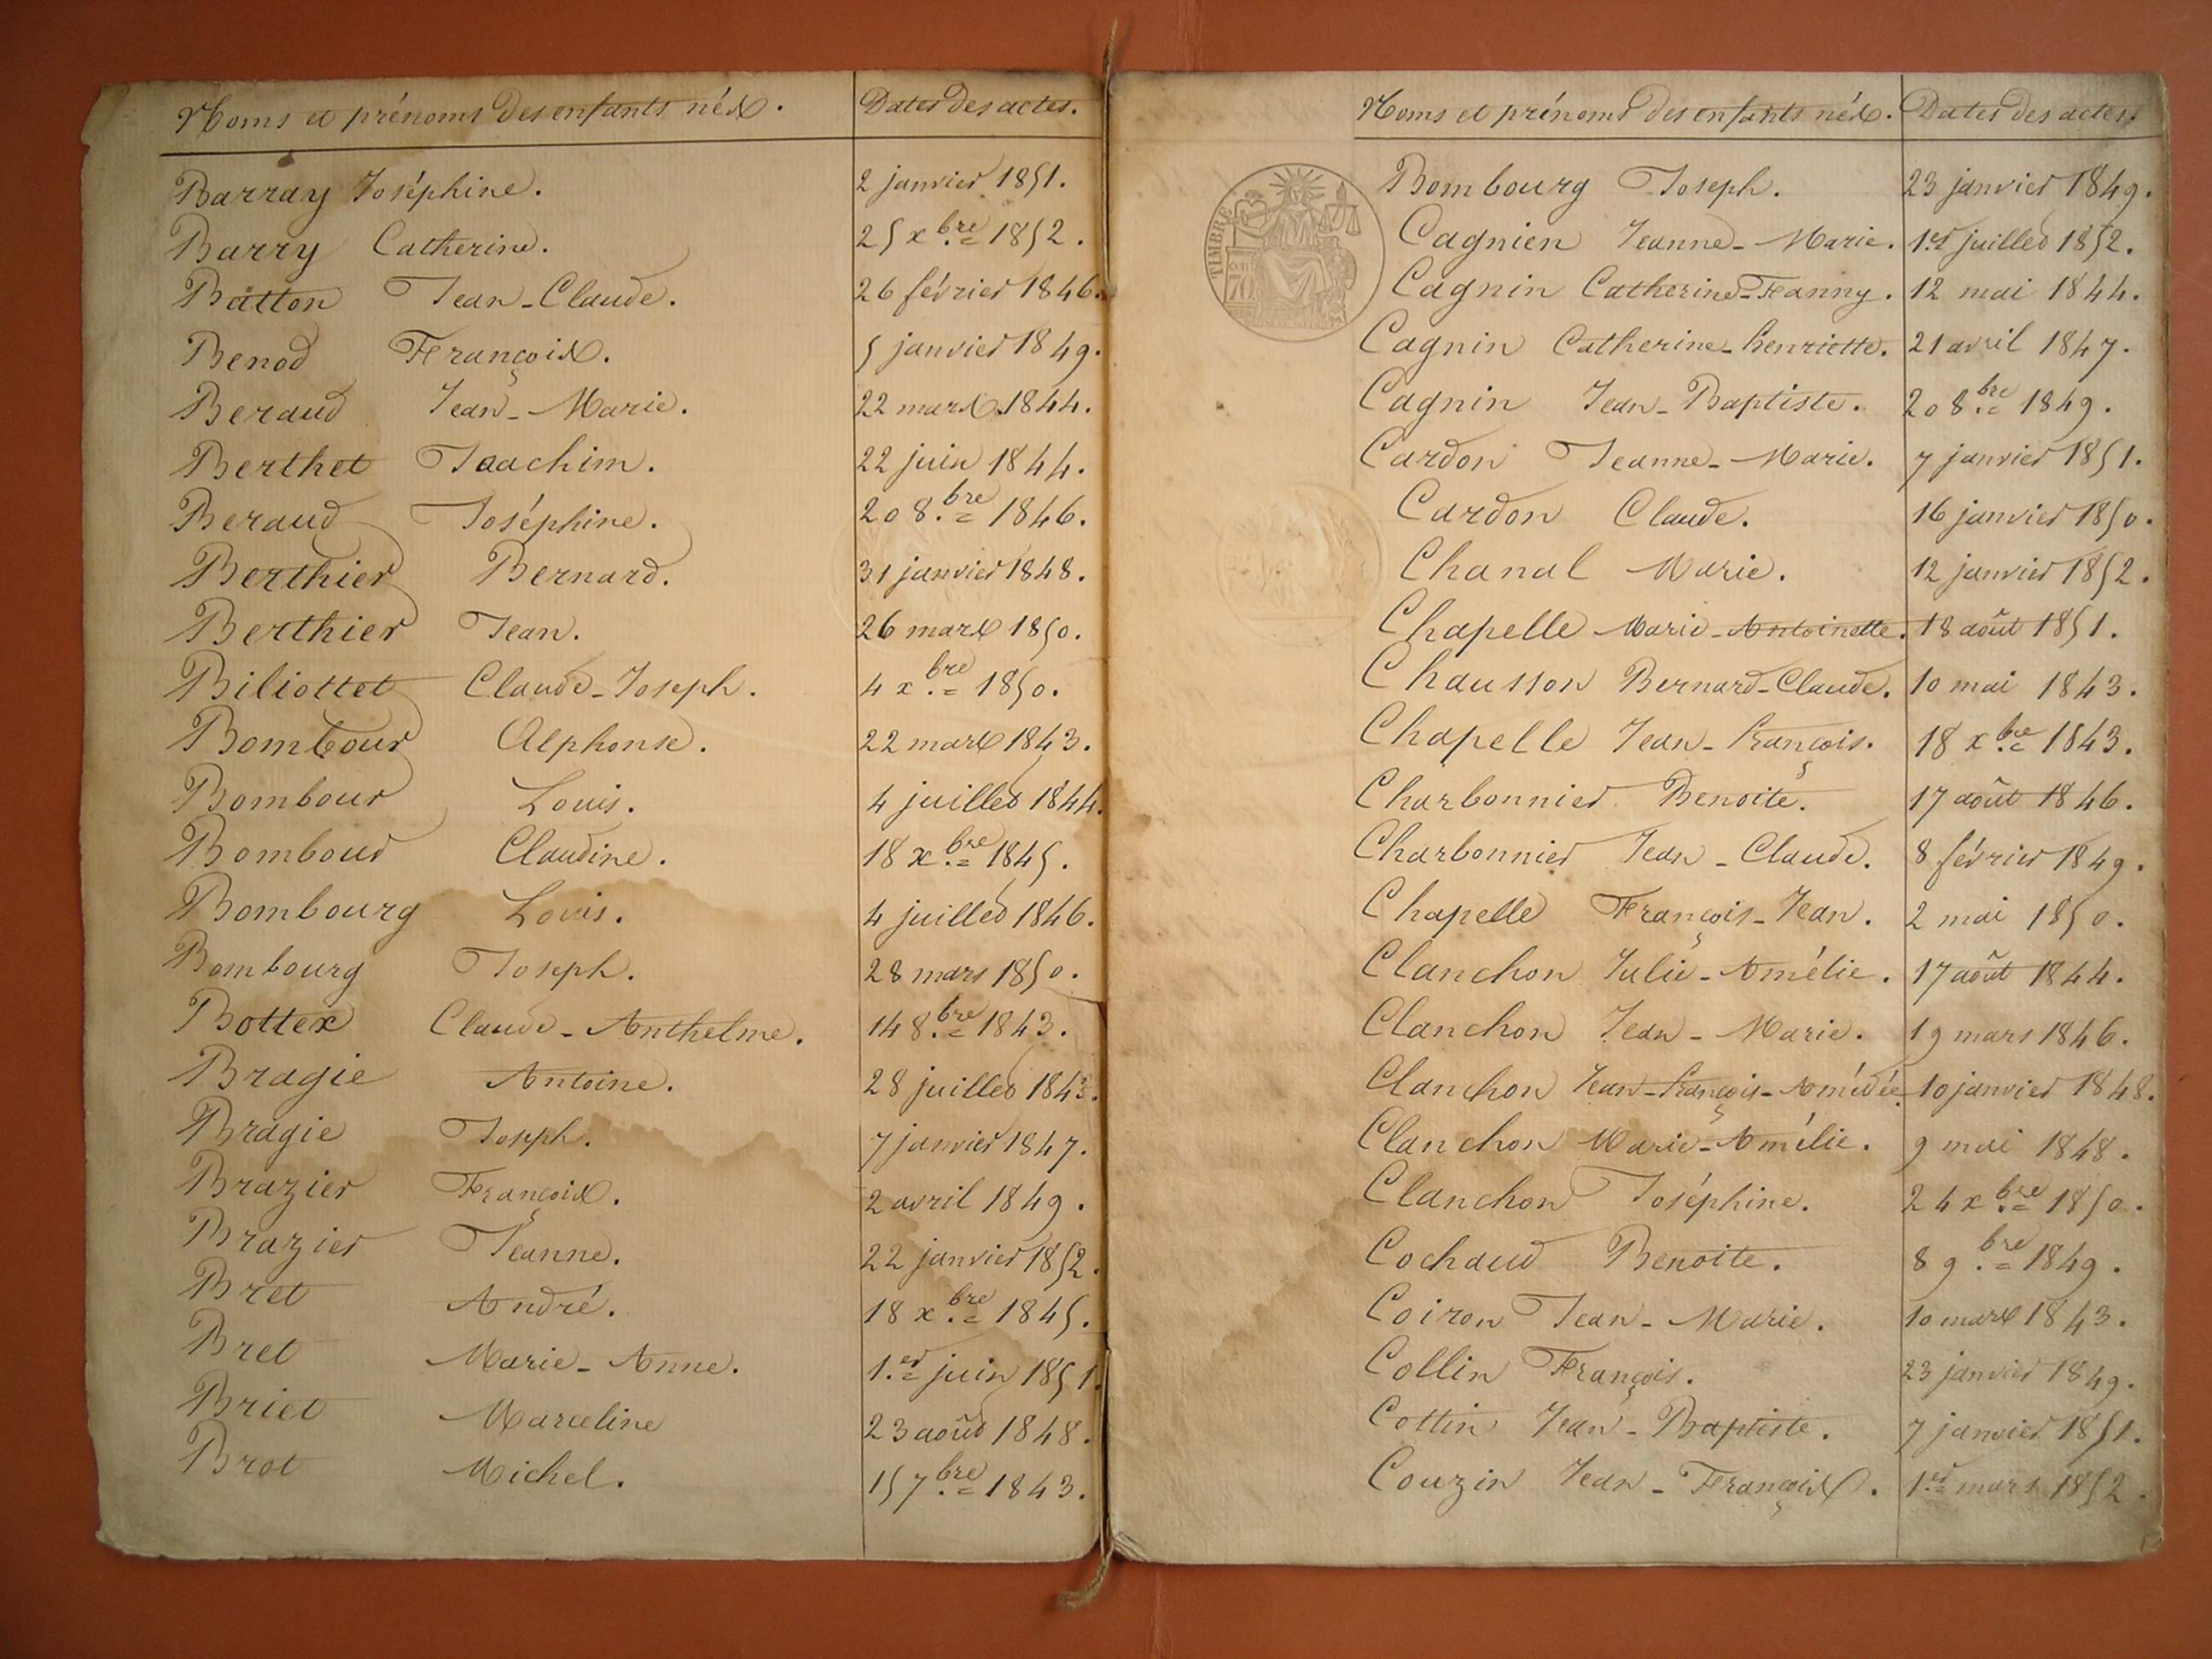 Noms et prénoms des enfants nés. Dates des actes.
Barray Joséphine. 2 janvier 1851.
Barry Catherine. 25 xbre 1852.
Batton Jean-Claude. 26 février 1846.
Benod François. 5 janvier 1849.
Beraud Jean-Marie. 22 mars 1844.
Berthet Joachim. 22 juin 1844.
Beraud Joséphine. 20 8.bre 1846.
Berthier Bernard. 31 janvier 1848.
Berthier Jean. 26 mars 1850.
Biliottet Claude-Joseph. 4 x.bre 1850.
Bombour Alphonse. 22 mars 1843.
Bombour Louis. 4 juillet 1844.
Bombour Claudine. 18 x.bre 1845.
Bombourg Louis. 4 juillet 1846.
Bombourg Joseph. 28 mars 1850.
Bottex Claude-Anthelme. 14 8.bre 1843.
Bragie Antoine. 28 juillet 1843.
Bragie Joseph. 7 janvier 1847.
Brazier François. 2 avril 1849.
Brazier Jeanne. 22 janvier 1852.
Bret André. 18 x.bre 1845.
Bret Marie-Anne. 1.er juin 1851.
Briet Marceline 23 août 1848.
Brot Michel. 15 7.bre 1843.
Noms et prénoms des enfants nés. Dates des actes.
TIMBRE
70
Bombourg Joseph. 23 janvier 1849.
Cagnien Jeanne-Marie. 1er juillet 1852.
Cagnin Catherine-Fanny. 12 mai 1844.
Cagnin Catherine-henriette. 21 avril 1847.
Cagnin Jean-Baptiste. 20 8.bre 1849.
Cardon Jeanne-Marie. 7 janvier 1851.
Cardon Claude. 16 janvier 1850.
Chanal Marie. 12 janvier 1852.
Chapelle Marie-Antoinette. 18 août 1851.
Chausson Bernard-Claude. 10 mai 1843.
Chapelle Jean-François. 18 x.bre 1843.
Charbonnier Benoite. 17 août 1846.
Charbonnier Jean-Claude. 8 février 1849.
Chapelle François-Jean. 2 mai 1850.
Clanchon Julie-Amélie. 17 août 1844.
Clanchon Jean-Marie. 19 mars 1846.
Clanchon Jean-François-Amédée. 10 janvier 1848.
Clanchon Marie-Amélie. 9 mai 1848.
Clanchon Joséphine. 24 x.bre 1850.
Cochaud Benoite. 8 9.bre 1849.
Coiron Jean-Marie. 10 mars 1843.
Collin François. 23 janvier 1849.
Cottin Jean-Baptiste. 7 janvier 1851.
Couzin Jean-François. 1.er mars 1852.